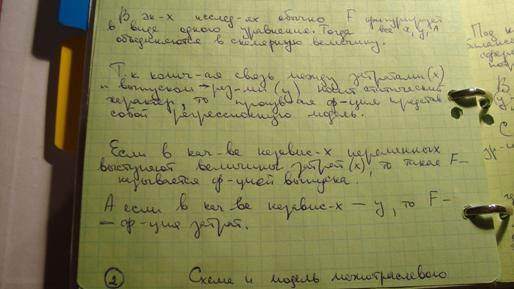 В эк-х исслед-ях обычно F фигурирует
в виде одного уравнения. Тогда все x, y, A
объединяются в скалярную величину.
Т.к. колич-ая связь между затратами (x)
и выпуском - рез-ми (y) носит статический
характер, то произв-ая ф-ция представ
собой регрессионную модель.
Если в кач-ве независ-х переменных
выступают величины затрат (x), то такая F-
-зывается ф-цией выпуска.
А если в кач-ве независ-х — y, то F-
- ф-ция затрат.
2 Схема и модель межотраслевого